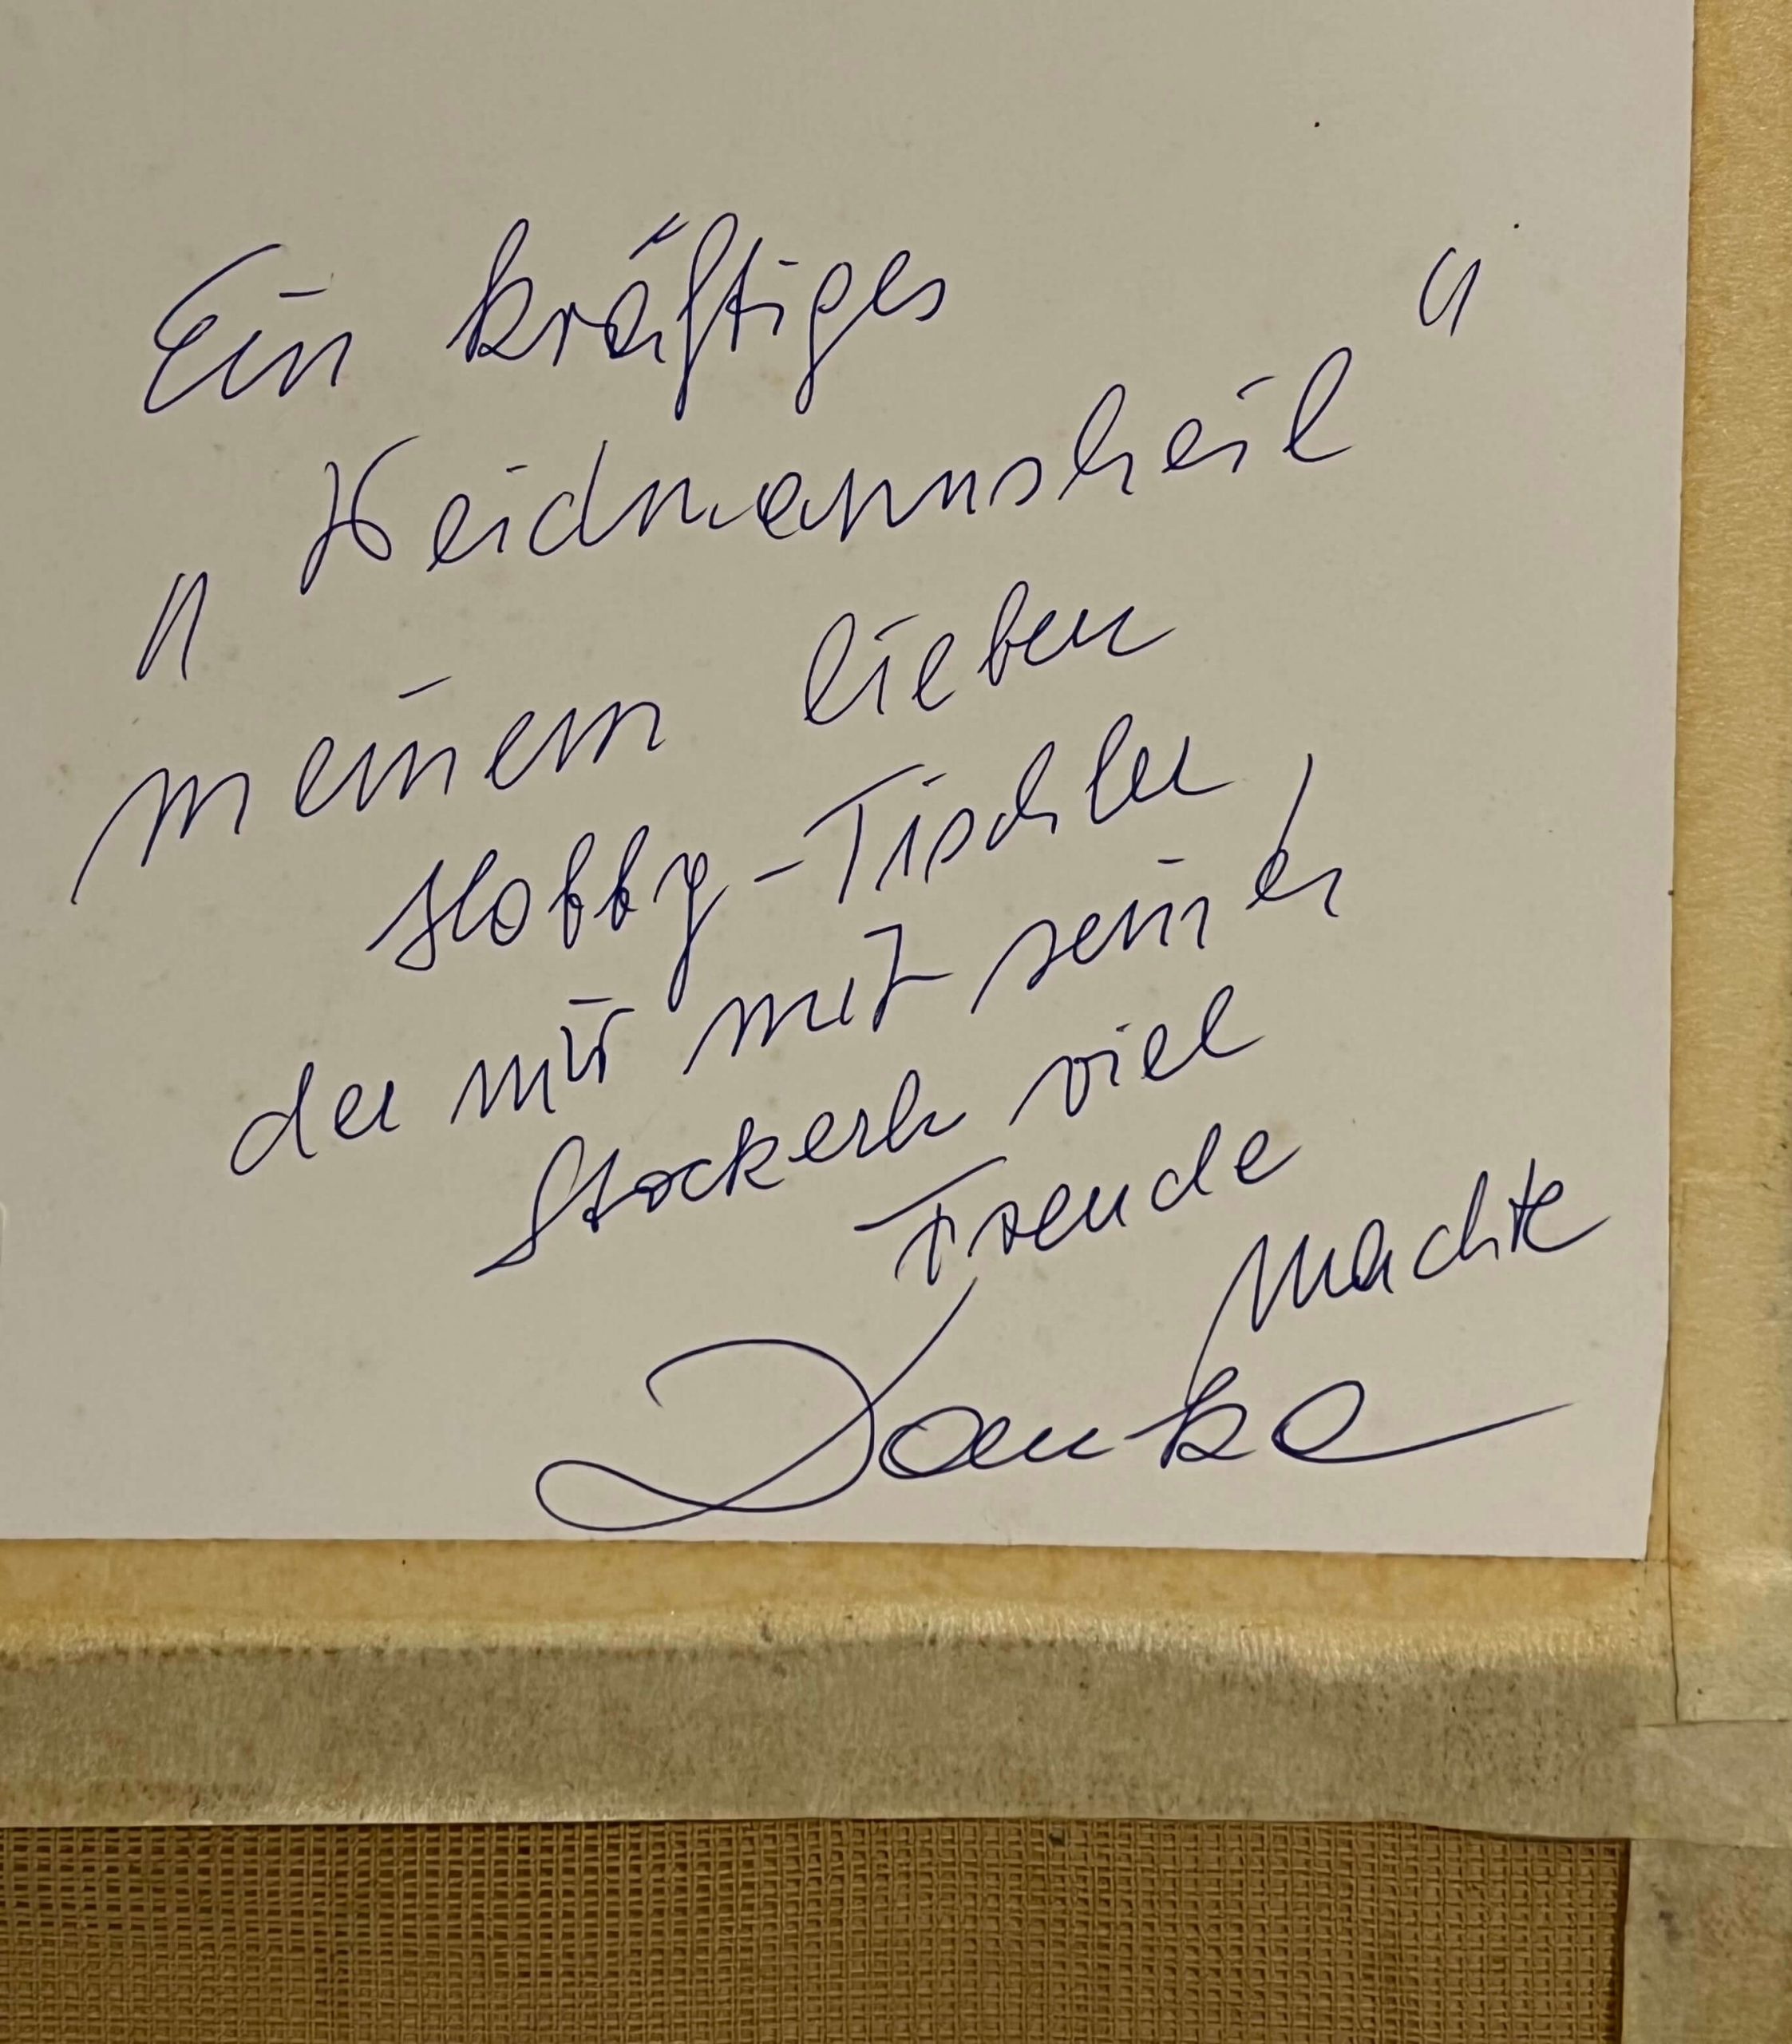 Ein kräftiges
„Weidmannsheil“
meinem lieben
Hobby-Tischler
der mir mit seinen
Stockerln viel
Freude
machte
Danke